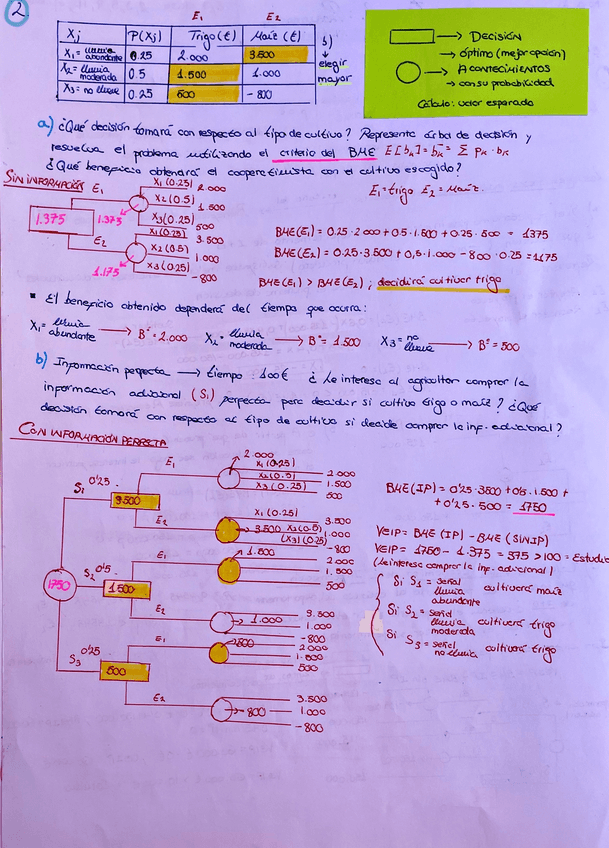 2
E1 E2
Xj P(Xj) Trigo (t) Maíz (t)
X1 = lluvia abundante 0.25 2.000 3.500
X2 = lluvia moderada 0.5 1.500 1.000
X3 = no llueve 0.25 500 -800
b)
↓
elegir
mayor
→ DECISIÓN
→ óptimo (mejor opción)
→ ACONTECIMIENTOS
→ con su probabilidad
Cálculo: valor esperado
a) ¿Qué decisión tomará con respecto al tipo de cultivo? Represente árbol de decisión y
resuelva el problema utilizando el criterio del BME E[bk] = bk = Σ pk · bk
¿Qué beneficio obtendrá el cooperativista con el cultivo escogido?
SIN INFORMACIÓN
E1 = trigo E2 = Maíz.
E1 X1 (0.25) 2.000
1.375 1.375 X2 (0.5) 1.500
X3 (0.25) 500
E2 X1 (0.25) 3.500
X2 (0.5) 1.000
1.175 X3 (0.25) -800
BME(E1) = 0.25 · 2000 + 0.5 · 1.500 + 0.25 · 500 = 1375
BME(E2) = 0.25 · 3.500 + 0,5 · 1.000 - 800 · 0.25 = 1175
BME(E1) > BME(E2) ; decidirá cultivar trigo
▪ El beneficio obtenido dependerá del tiempo que ocurra:
X1 = lluvia abundante → Bº = 2.000 X2 = lluvia moderada → Bº = 1.500 X3 = no llueve → Bº = 500
b) Información perfecta → tiempo : 100€ ¿Le interesa al agricultor comprar la
información adicional (Si) perfecta para decidir si cultiva trigo o maíz? ¿Qué
decisión tomará con respecto al tipo de cultivo si decide comprar la inf. adicional?
CON INFORMACIÓN PERFECTA
1750
S1 0'25 3.500
E1 2.000
X1 (0.25) 2.000
X2 (0.5) 1.500
X3 (0.25) 500
E2 3.500
X1 (0.25) 3.500
X2 (0.5) 1.000
(X3) (0.25) -800
S2 0'5 1.500
E1 1.500
2.000
1.500
500
E2 1.000
3.500
1.000
-800
S3 0'25 500
E1
2.000
1.500
500
E2 -800
3.500
1.000
-800
BME(IP) = 0'25 · 3500 + 0'5 · 1.500 +
+ 0'25 · 500 = 1750
VEIP = BME (IP) - BME (SIN IP)
VEIP = 1750 - 1.375 = 375 > 100 = Estudio
(Le interesa comprar la inf. adicional)
Si S1 = señal lluvia abundante cultivará maíz
Si S2 = señal lluvia moderada cultivará trigo
Si S3 = señal no lluvia cultivará trigo